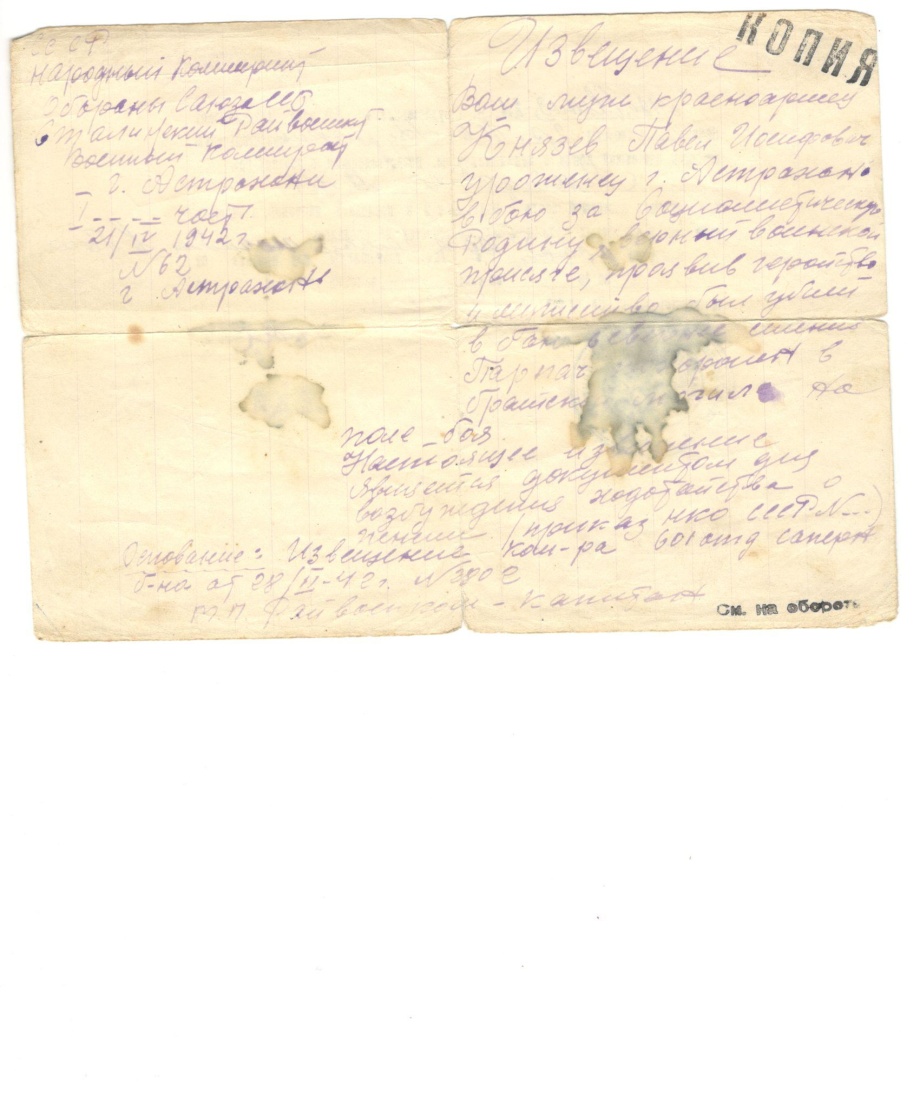 СССР
Народный Комиссариат
Обороны Союза ССР
Сталинский Райвоенкомат
Военный Комиссариат
г. Астрахани
I ----- часть
21/IV 1942 г.
№ 62
г Астрахань
КОПИЯ
Извещение
Ваш муж красноармеец
Князев Павел Иосифович
уроженец г. Астрахань
в бою за Социалистическую
Родину верный воинской
присяге, проявив геройство
и мужество был убит
в селения
Парпач в
братской могиле на
поле боя
Настоящее извещение
является документом для
возбуждения ходатайства о
пенсии (приказ НКО СССР N---)
Основание: Извещение ком-ра 601 отд саперн
б-на от 28/II-42 г. №
М.П. Райвоенком - Капитан
См. на обороте